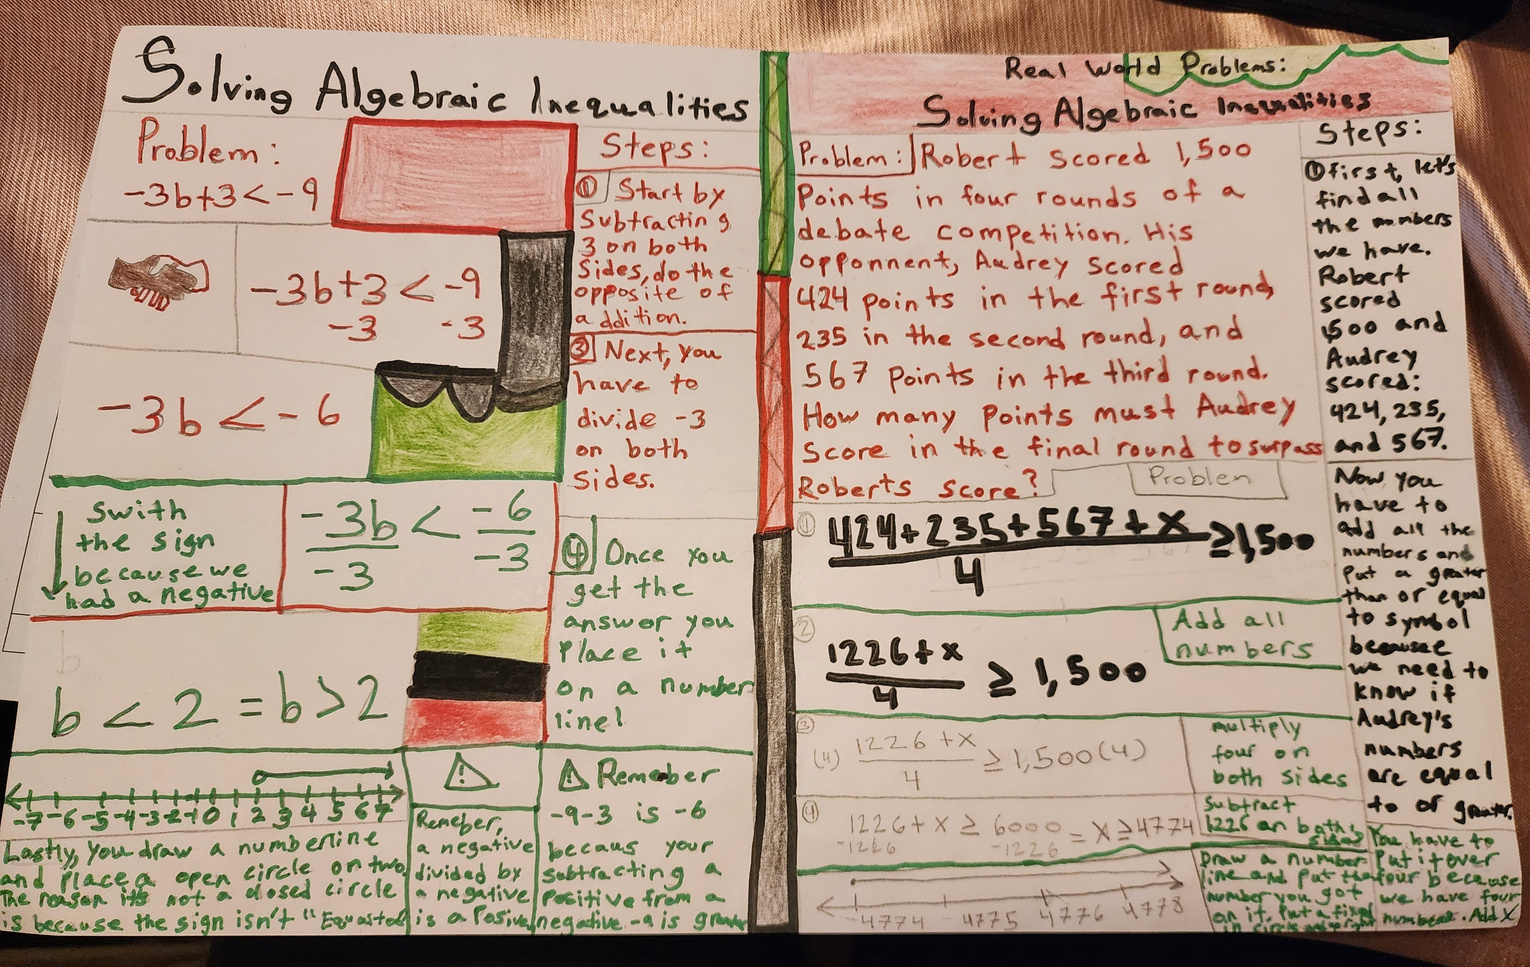 Solving Algebraic Inequalities
Problem:
-3b+3 < -9
-3b+3 < -9
-3 -3
-3b < -6
swith
the sign
because we
had a negative
-3b < -6
-3 -3
b < 2 = b > 2
-7 -6 -5 -4 -3 -2 -1 0 1 2 3 4 5 6 7
Lastly, you draw a numberline
and place a open circle on two
The reason it's not a closed circle
is because the sign isn't "Equasted
Steps:
① Start by
Subtracting
3 on both
Sides, do the
opposite of
addition.
③ Next, you
have to
divide -3
on both
Sides.
④ Once you
get the
answor you
Place it
on a number
line!
!
Remeber,
a negative
divided by
a negative
is a Posive
! Remember
-9-3 is -6
becaus your
subtracting a
Positive from a
negative -9 is greater
Real World Problems:
Solving Algebraic Inequalities
Problem: Robert scored 1,500
Points in four rounds of a
debate competition. His
opponnent, Audrey scored
424 points in the first round,
235 in the second round, and
567 Points in the third round.
How many Points must Audrey
Score in the final round to surpass
Roberts score?
Problem
① 424+235+567+x ≥ 1,500
4
② 1226+x ≥ 1,500
4
Add all
numbers
③ (4) 1226+x ≥ 1,500(4)
4
multiply
four on
both sides
④ 1226+x ≥ 6000 = x ≥ 4774
-1226 -1226
Subtract
1226 on both
sides
-4774 -4775 4776 4778
Draw a number
line and put the
number you got
on it. Put a
in circle
Steps:
① first, let's
find all
the numbers
we have.
Robert
scored
1,500 and
Audrey
scored:
424, 235,
and 567.
Now, you
have to
add all the
numbers and
Put a greater
than or equal
to symbol
because
we need to
know if
Audrey's
numbers
are equal
to or greater.
You have to
Put it over
four because
we have four
numbers. Add X